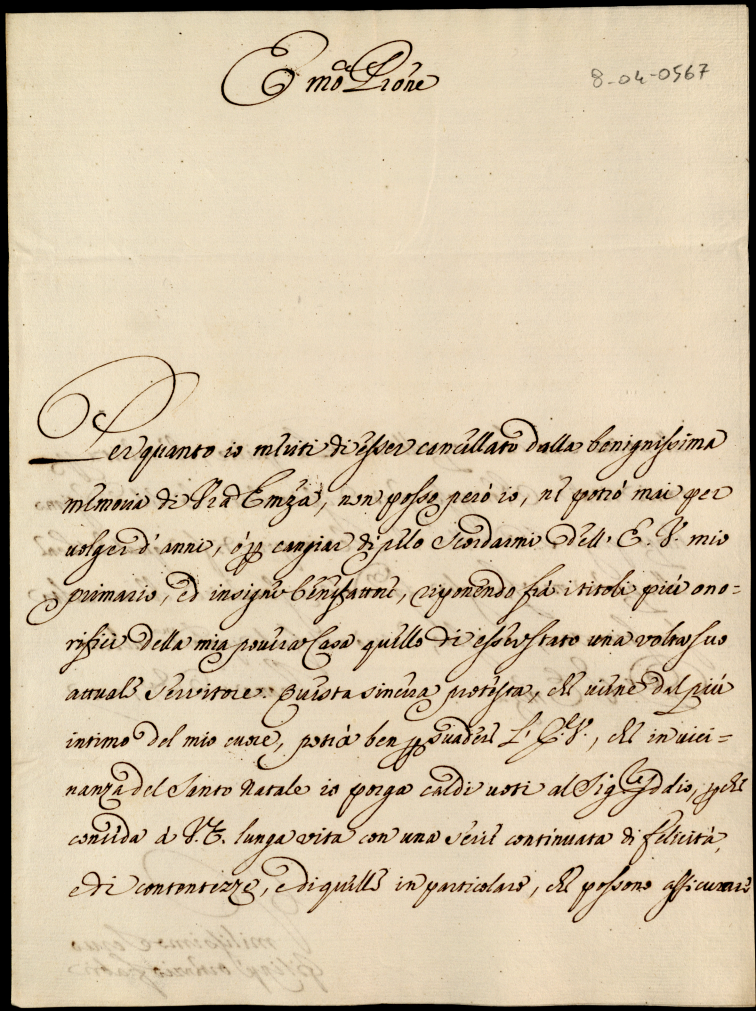 Emo Prone
8-04-0567
Per quanto io meriti di esser cancellato dalla benignissima
memoria di Vra Emza, non posso però io, nè potrò mai per
volger d'anni, ò p cangiar di pelo scordarmi dell' E. V. mio
primario, ed insigne benefattore, riponendo frà i titoli più ono=
rifici della mia povera Casa quello di essere stato una volta suo
attuale servitore. Questa sincera protesta, che viene dal più
intimo del mio cuore, potrà ben psuadere l' E. V., che in vici=
nanza del Santo Natale io porga caldi voti al Sigre Iddio, pche
conceda à V. E. lunga vita con una serie continuata di felicità,
e di contentezze, e di quelle in particolare, che possono assicurare